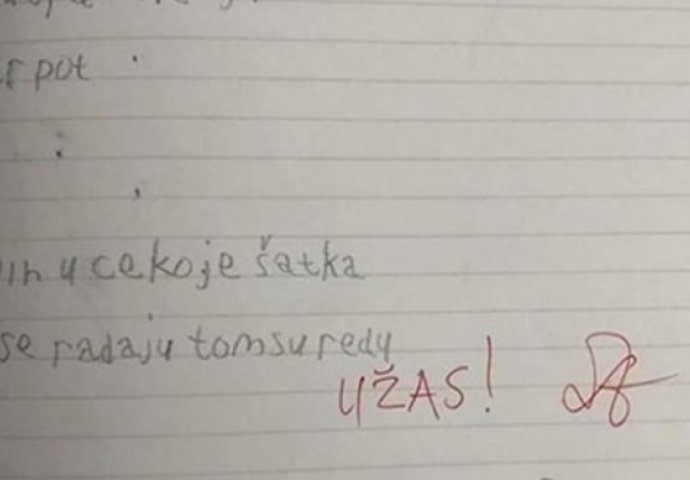 pot
u cekoje šatka
se radaju tomsuredu
UŽAS!